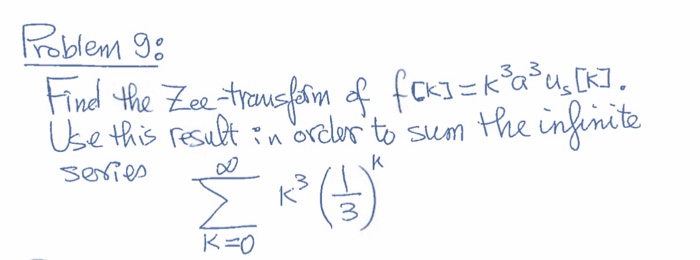 Problem 9:
Find the Zee-transform of f[k]=k³a³u_s[k].
Use this result in order to sum the infinite
series ∑_{k=0}^{∞} k³(1/3)^k